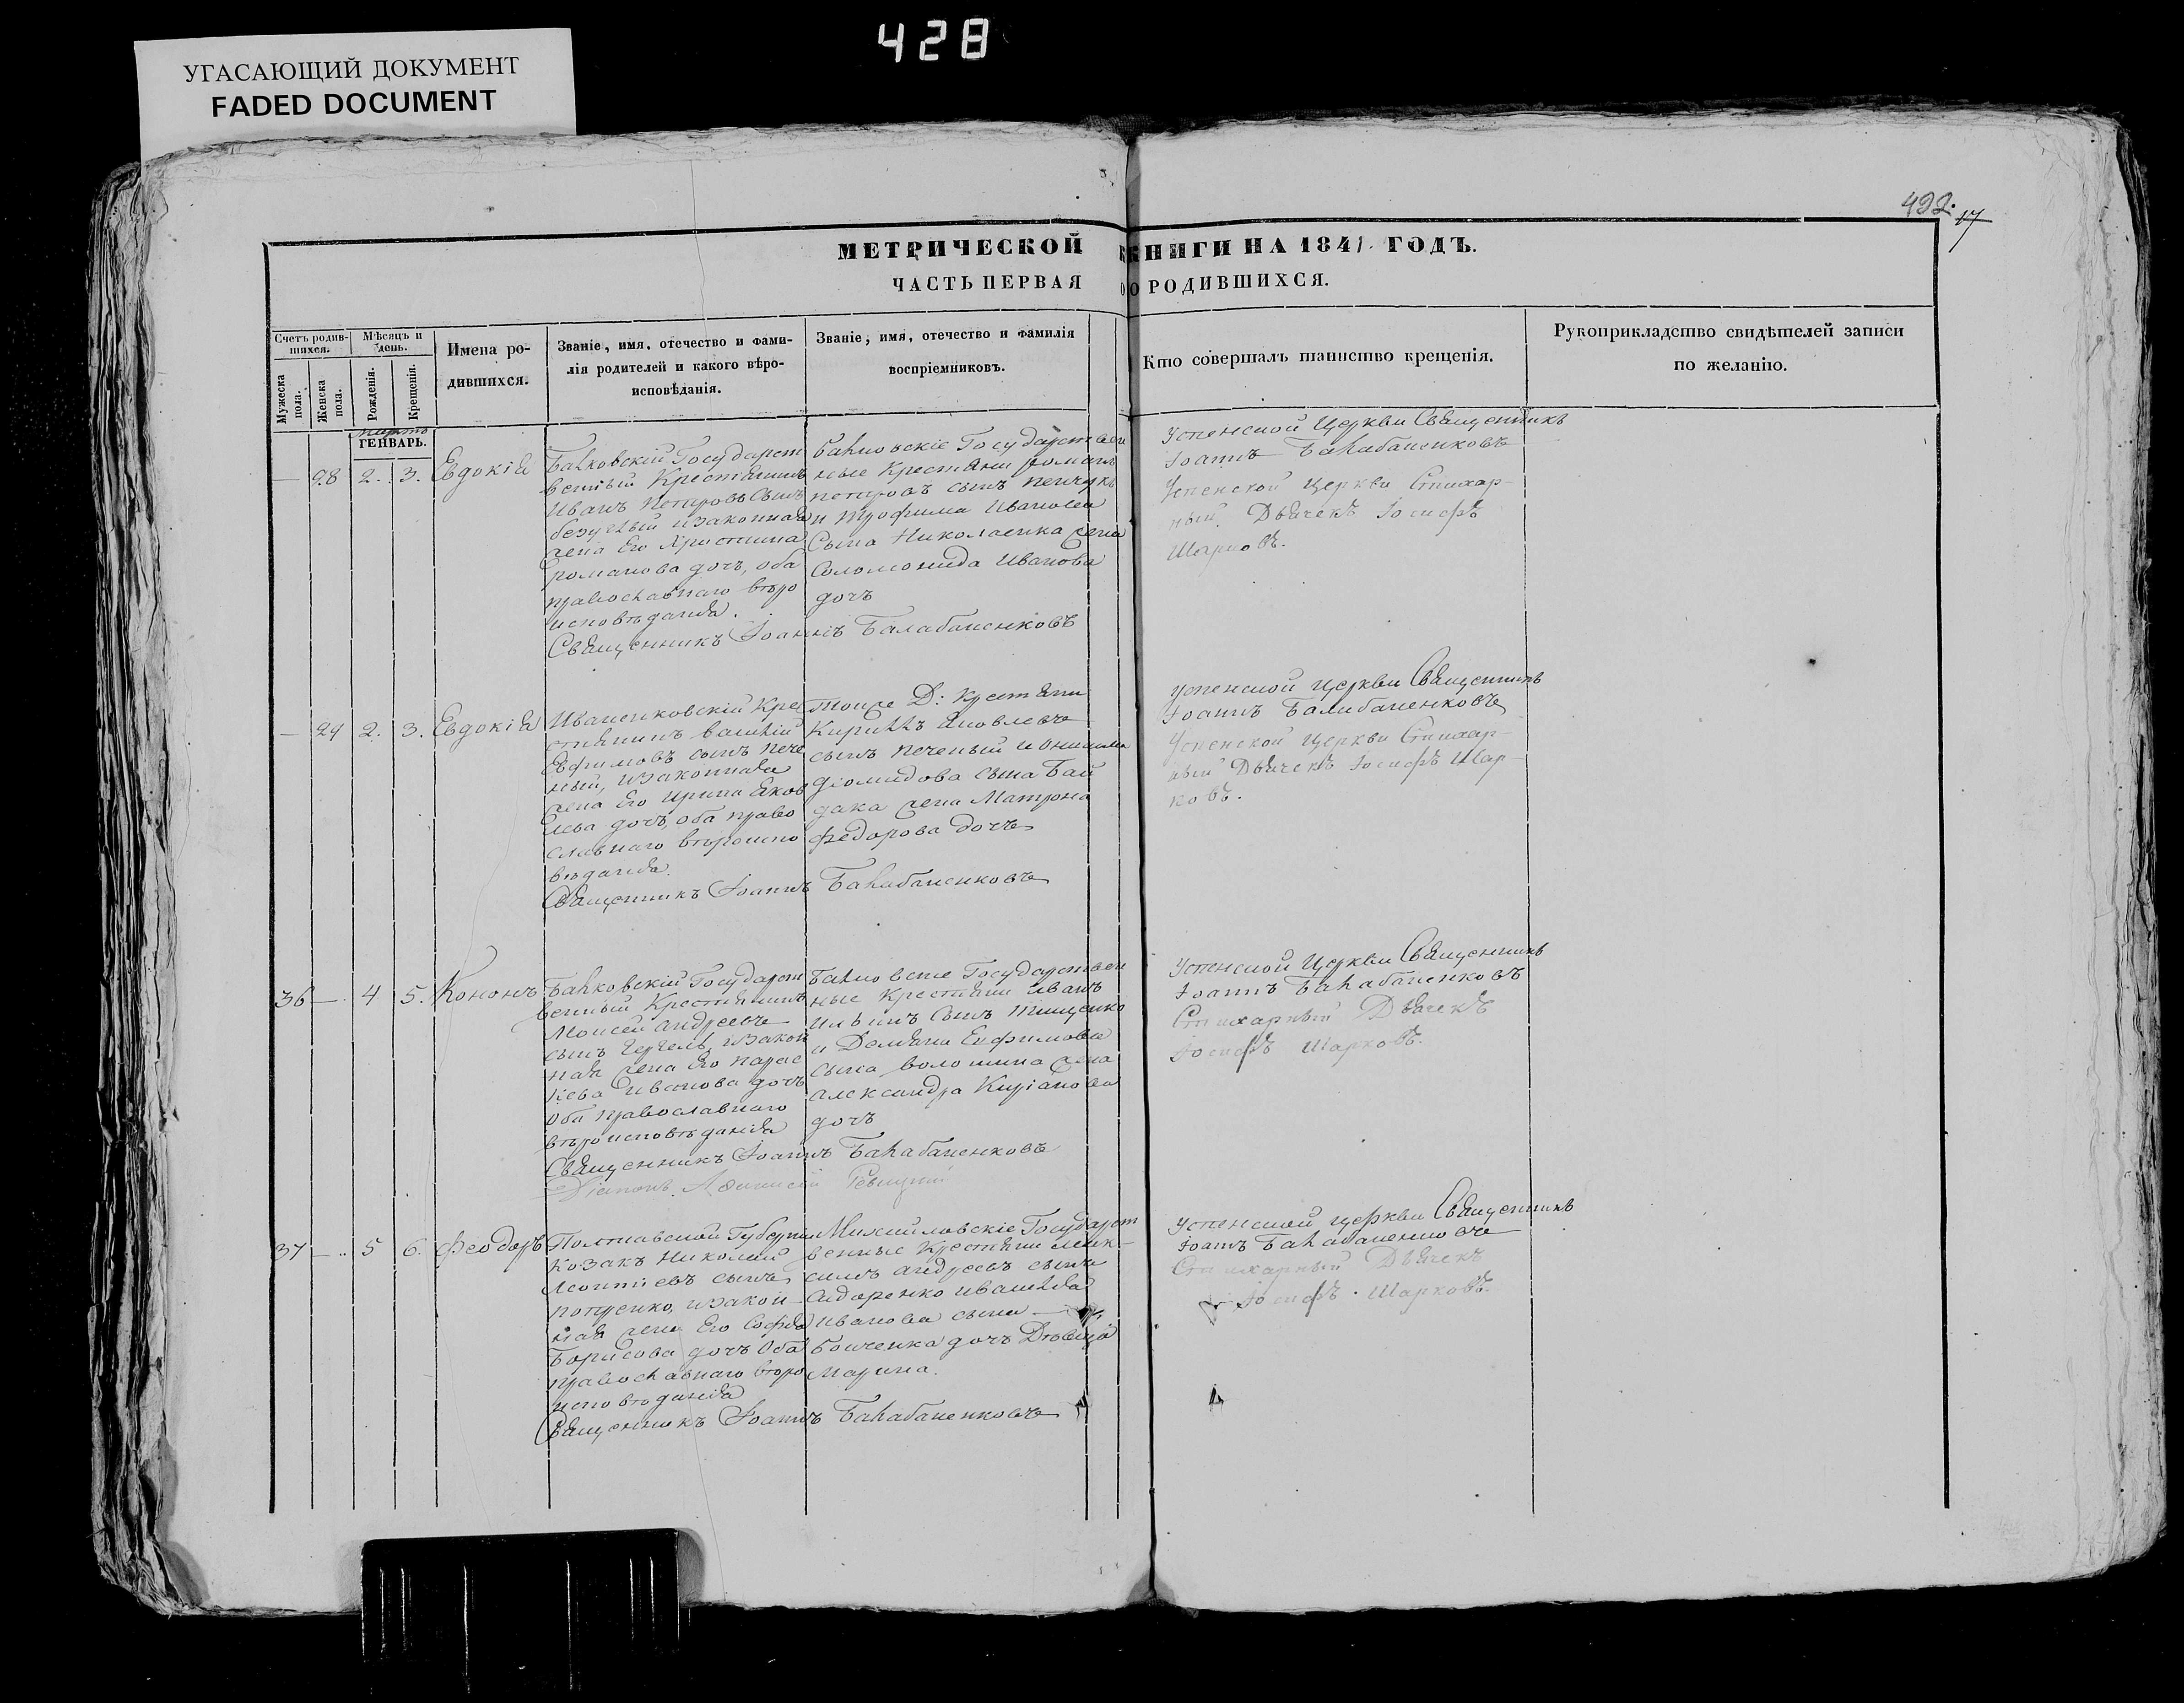 428
УГАСАЮЩИЙ ДОКУМЕНТ
FADED DOCUMENT
492. 17
МЕТРИЧЕСКОЙ КНИГИ НА 1841 ГОДЪ.
ЧАСТЬ ПЕРВАЯ О РОДИВШИХСЯ.
Счетъ родив-
шихся.
Мужеска пола.
Женска пола.
Мѣсяцъ и
день.
Рожденія.
Крещенія.
Имена ро-
дившихся.
Званіе, имя, отечество и фами-
лія родителей и какого вѣро-
исповѣданія.
Званіе, имя, отечество и фамилія
воспріемниковъ.
Кто совершалъ таинство крещенія.
Рукоприкладство свидѣтелей записи
по желанію.
Марто
ГЕНВАРЬ.
— 28 2. 3. Евдокія
Балковскій Государст
венный Крестянинъ
Иванъ Петровъ сынъ
безуглый изаконная
жена Его Христина
романова дочь, оба
православнаго вѣро
исповѣданія.
Балковскіе Государствен
ные Крестяни романъ
петровъ сынъ
и трофима Иванова
Сына Николаенка жена
Соломонида Иванова
дочъ
Священникъ Іоаннъ Балабаненковъ
Успенской Церкви Священникъ
Іоаннъ Балабаненковъ
Успенской Церкви Стихар-
ный Дьячекъ Іосифъ
Шарковъ.
— 29 2. 3. Евдокія
Иваненковскій Кре
стянинъ василій
Ефимовъ сынъ пече
ный, изаконная
жена Его Ирина Яков
лева дочъ, оба право
славнаго вѣроиспо
вѣданія.
Тойже Д: крестяни
Кириллъ Яковлевъ
сынъ печеный и Онисима
діомидова сына Бай
дака жена Матрона
федорова дочъ
Священникъ Іоаннъ Балабаненковъ
Успенской Церкви Священникъ
Іоаннъ Балабаненковъ
Успенской Церкви Стихар-
ный Дьячекъ Іосифъ Шар-
ковъ.
36 — 4 5. Кононъ
Балковскій Государст
венный Крестянинъ
Моисей андреевъ
сынъ Чергель, изакон
ная жена Его парас
кева Иванова дочъ
оба православнаго
вѣроисповѣданія
Балковскіе Государствен
ные Крестяни Иванъ
Ильинъ Сынъ тищенко
и Демяна Евфимова
сына волошина жена
александра Киріанова
дочъ
Священникъ Іоаннъ Балабаненковъ
Діаконъ
Успенской Церкви Священникъ
Іоаннъ Балабаненковъ
Стихарный Дьячекъ
Іосифъ Шарковъ.
37 — 5 6. Феодоръ
Полтавской Губерніи
Козакъ Николай
Леонтіевъ сынъ
потуженко, изакон-
ная жена Его Софія
Борисова дочъ Оба
православнаго вѣро
исповѣданія
Михайловскіе Государст
венные Крестяни Мак-
симъ андреевъ сынъ
сидоренко
Иванова сына —
бойченка дочъ Дѣвица
Марина.
Священникъ Іоаннъ Балабаненковъ
Успенской Церкви Священникъ
Іоаннъ Балабаненковъ
Стихарный Дьячекъ
Іосифъ Шарковъ.